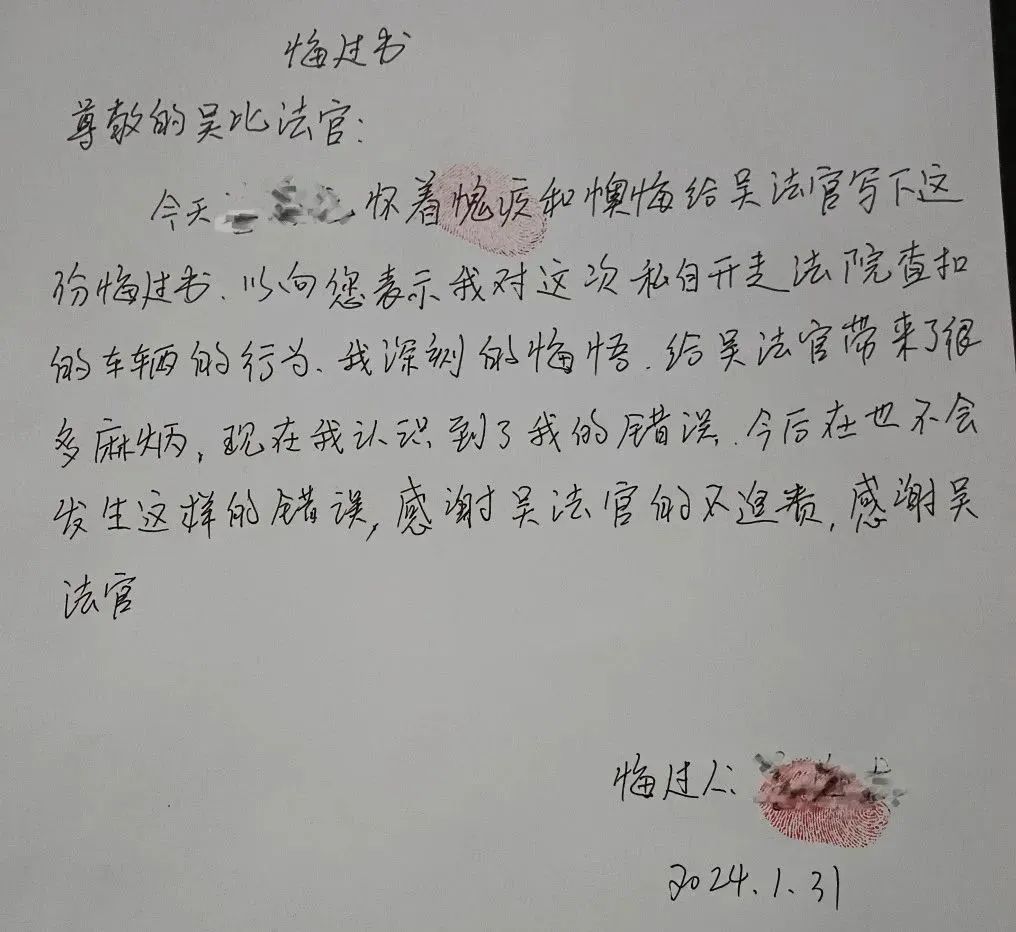 悔过书
尊敬的吴比法官:
今天 怀着愧疚和懊悔给吴法官写下这
份悔过书、以向您表示我对这次私自开走法院查扣
的车辆的行为、我深刻的悔悟.给吴法官带来了很
多麻烦,现在我认识到了我的错误.今后在也不会
发生这样的错误,感谢吴法官的不追责,感谢吴
法官
悔过人:
2024.1.31